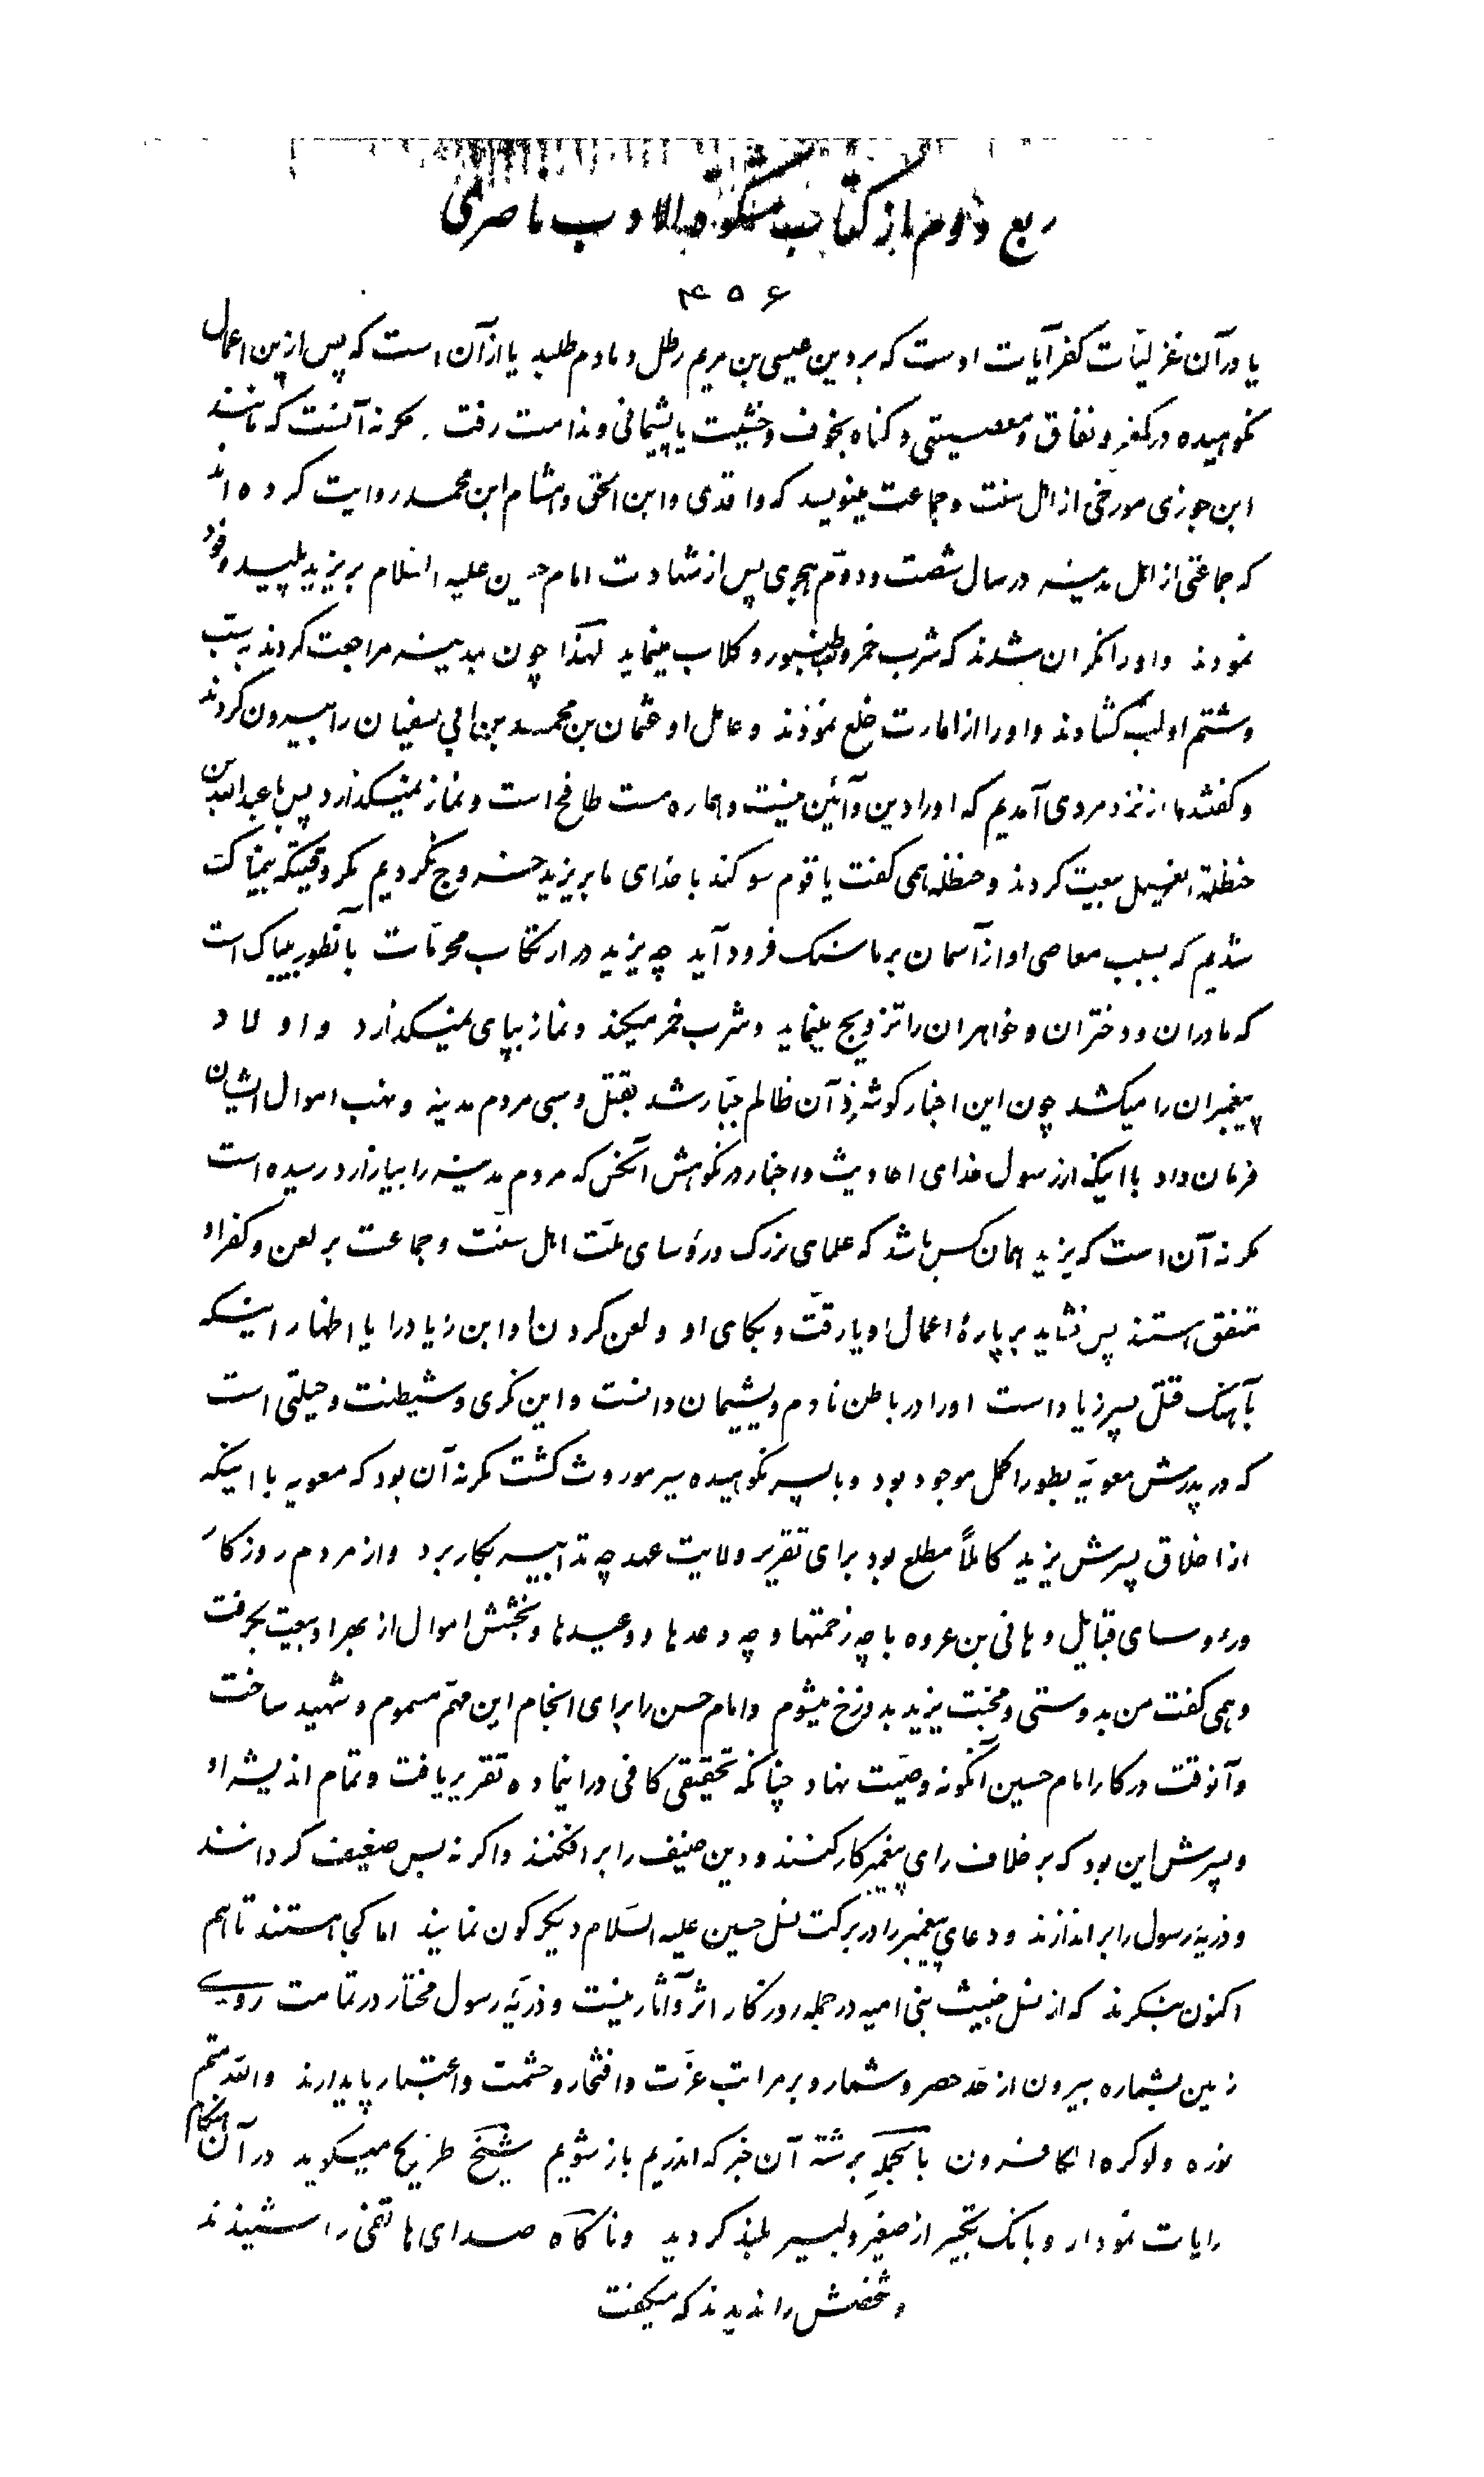 ربع دوم از کتاب مشکوة الادب ناصری
۴۵۶
یا در آن غزلیات کفر آیات اوست که بر دین عیسی بن مریم رطل دمادم طلبد یا از آن است که پس ازین اعمال
نکوهیده در کفر و نفاق و معصیتی و گناه بخوف و خشیت یا پشیمانی و ندامت رفت . مگر نه آنست که مانند
ابن جوزی مورخی از اهل سنت و جماعت مینویسد که واقدی و ابن اسحق و هشام ابن محمد روایت کرده اند
که جماعتی از اهل مدینه در سال شصت و دوّم هجری پس از شهادت امام حسین علیه السلام بر یزید پلید وفود
نمودند و او را نگران شدند که شرب خمر و طنبور و کلاب مینماید لهذا چون بمدینه مراجعت کردند به سبّ
و شتم او لب گشادند و او را از امارت خلع نمودند و عامل او عثمان بن محمد بن ابی سفیان را بیرون کردند
و گفتند ما از نزد مردی آمدیم که او را دین و آئین نیست و هماره مست طافح است و نماز نمیگذارد پس با عبدالله بن
حنظلة الغسیل بیعت کردند و حنظله همی گفت یا قوم سوگند با خدای ما بر یزید خروج نکردیم مگر وقتیکه بیمناک
شدیم که بسبب معاصی او از آسمان بر ما سنگ فرود آید چه یزید در ارتکاب محرمّات بآنطور بیباک است
که مادران و دختران و خواهران را تزویج مینماید و شرب خمر میکند و نماز بپای نمیگذارد و اولاد
پیغمبران را میکشد چون این اخبار گوشزد آن ظالم جبّار شد بقتل و سبی مردم مدینه و نهب اموال ایشان
فرمان داد با اینکه از رسول خدای احادیث و اخبار در نکوهش آنکس که مردم مدینه را بیازارد رسیده است
مگر نه آن است که یزید همان کس باشد که علمای بزرگ و رؤسای ملّت اهل سنّت و جماعت بر لعن و کفر او
متفق هستند پس نشاید بر پارهٔ اعمال او یا رقّت و بکای او و لعن کردن او ابن زیاد را یا اظهار اینکه
بآهنگ قتل پسر زیاد است او را در باطن نادم و پشیمان دانست و این نکری و شیطنت و حیلتی است
که در پدرش معویّه بطور اکمل موجود بود و با پسر نکوهیده سیر موروث گشت مگر نه آن بود که معویه با اینکه
از اخلاق پسرش یزید کاملاً مطلع بود برای تقریر ولایت عهد چه تدابیر بکار برد و از مردم روزگار
و رؤسای قبایل و هانی بن عروه با چه زحمتها و چه وعدها و وعیدها و بخشش اموال از بهر او بیعت بگرفت
و همی گفت من بدوستی و محبّت یزید بدوزخ میشوم و امام حسن را برای انجام این مهمّ مسموم و شهید ساخت
و آنوقت در کار امام حسین آنگونه وصیّت نهاد چنانکه تحقیقی کافی در اینماده تقریر یافت و تمام اندیشه او
و پسرش این بود که بر خلاف رای پیغمبر کار کنند و دین حنیف را برافکنند و اگر نه بس ضعیف گردانند
و ذریهٔ رسول را براندازند و دعای پیغمبر را در برکت نسل حسین علیه السّلام دیگرگون نمایند اما کجا هستند تا هم
اکنون بنگرند که از نسل خبیث بنی امیه در جمله روزگار اثر و آثار نیست و ذریّهٔ رسول مختار در تمامت روی
زمین بشماره بیرون از حد حصر و شمار و بر مراتب عزّت و افتخار و حشمت و اعتبار پایدارند والله متمّ
نوره ولو کره الکافرون بالجمله برشته آن خبر که اندریم باز شویم شیخ طریح میگوید در آن هنگام
رایات نمودار و بانگ تکبیر از صغیر و کبیر بلند گردید و ناگاه صدای هاتفی را شنیدند
و شخصش را ندیدند که میگفت